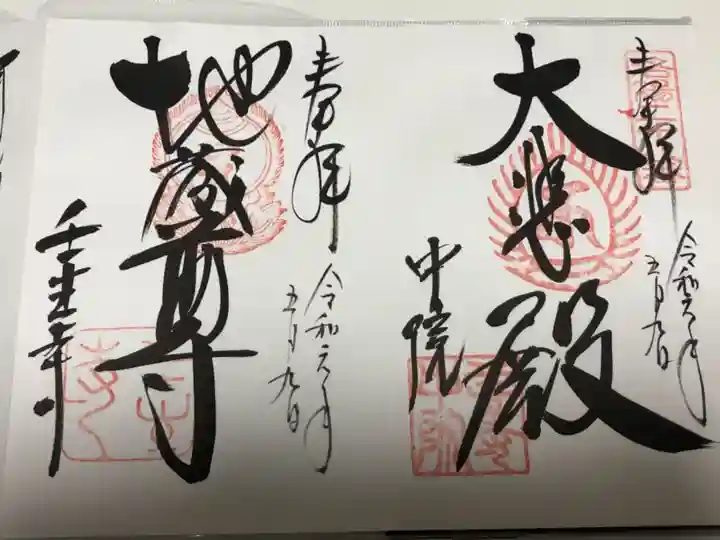 奉拝
令和元年
五月九日
大悲殿
中院
奉拝
令和元年
五月九日
地蔵尊
壬生寺